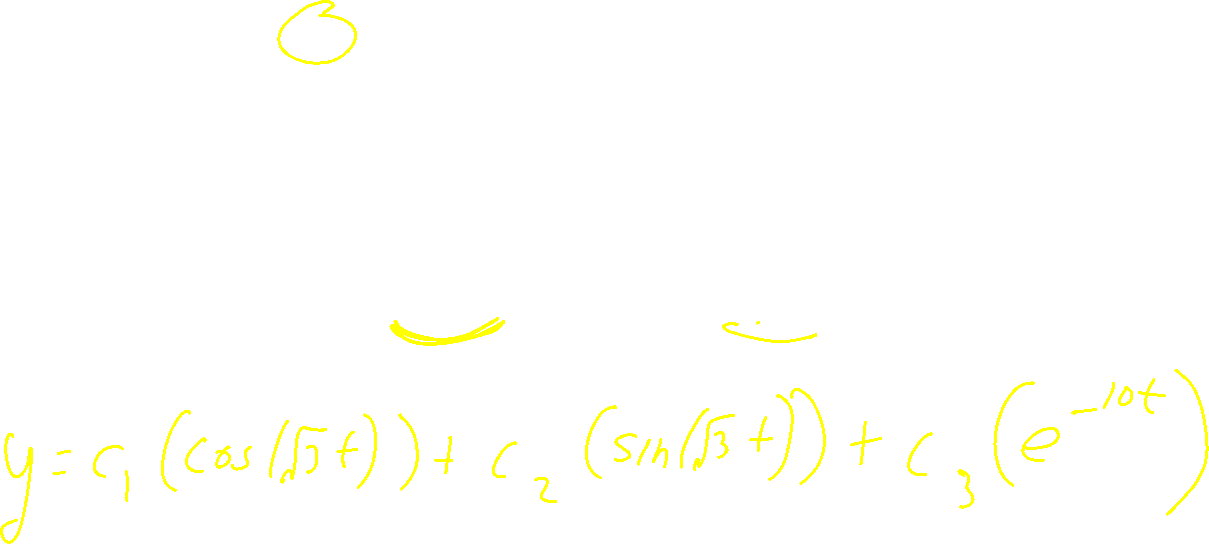 y = c₁(cos(√3 t)) + c₂(sin(√3 t)) + c₃(e^{-10t})